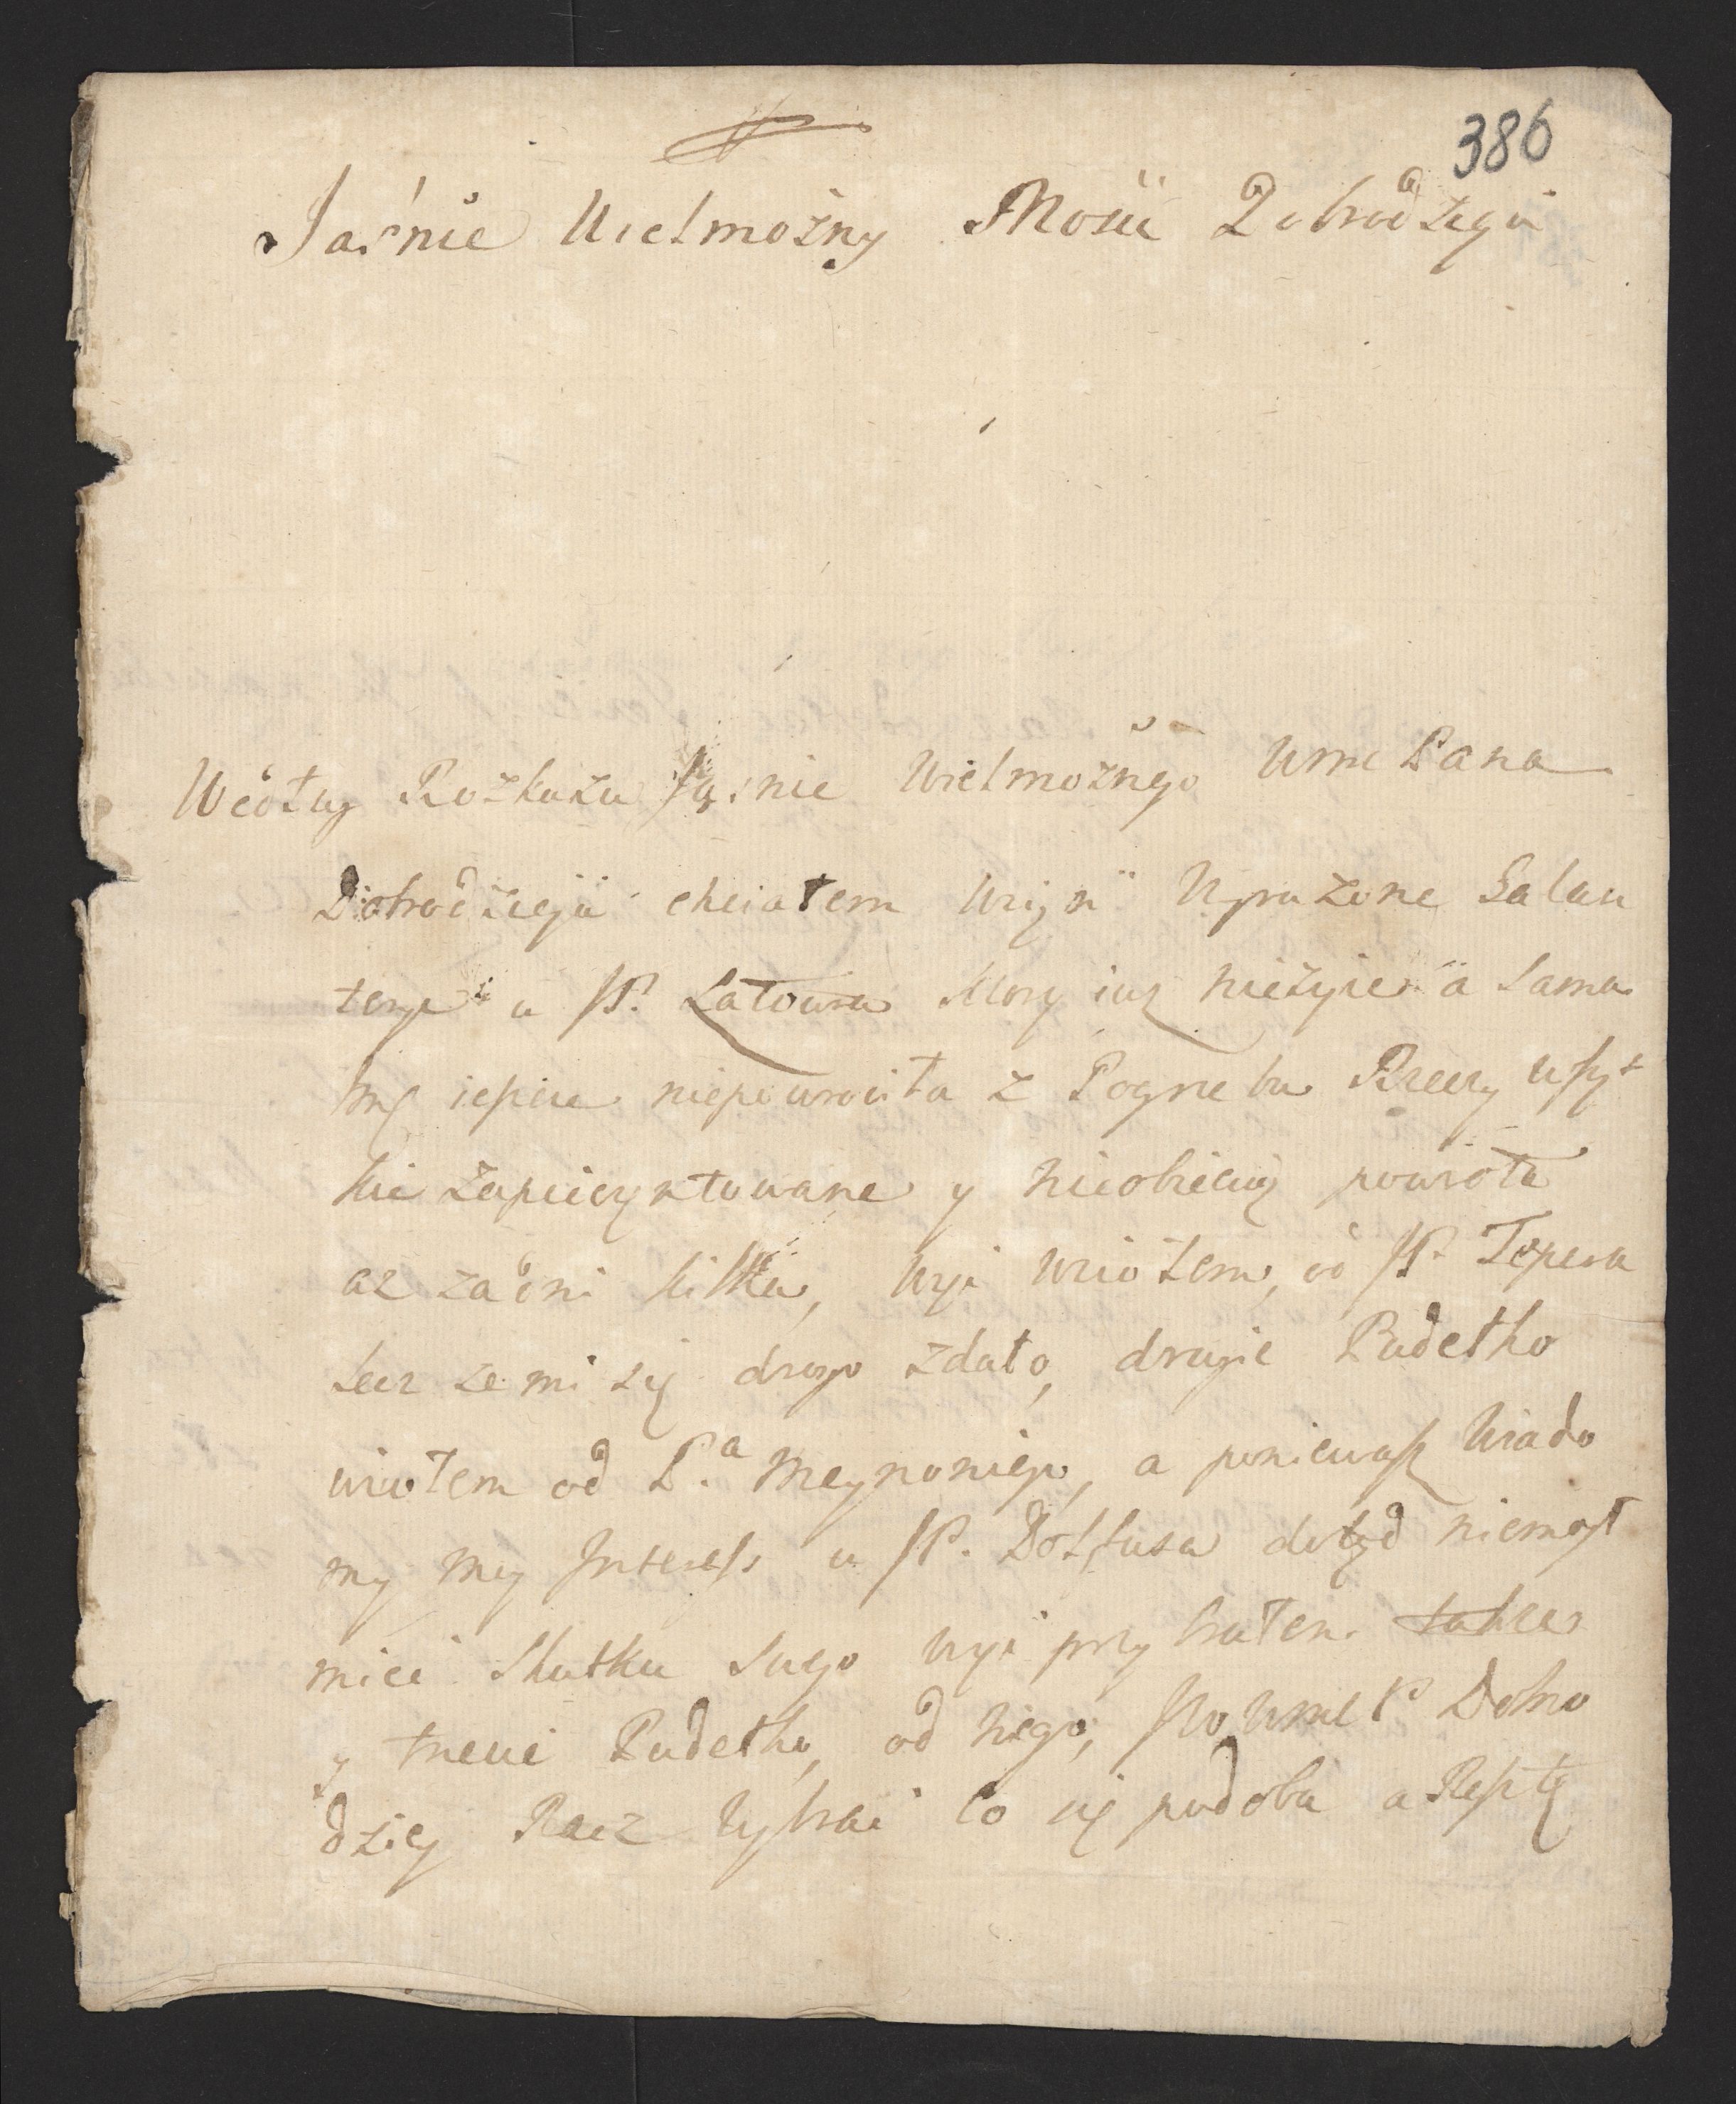 386
Jaśnie Wielmożny Mośći Dobrodzieju
Według Rozkazu Jaśnie Wielmożnego Wme Pana
Dobrodzieja chciałem wziąść Wyrażone Galan
terye u JP. Latoura ktory iuż nieżyie a sama
ieszcze niepowrociła z Pogrzebu Rzeczy wszyt
kie zapieczętowane y nieobiecuią powrotu
aż za dni kilka, wziołem od JP. Tepera
lecz ze mi się drogo zdało, drugie Pudełko
wziołem od P.a Meynoniego, a poniewasz wiado
my moy Interess u JP. Dolfusa dotąd niemogł
mieć skutku swego przybrałem także
y trzecie Pudełko od niego, JWo Wme P Dobro
dziey Racz wybrać co się podoba a Resztę